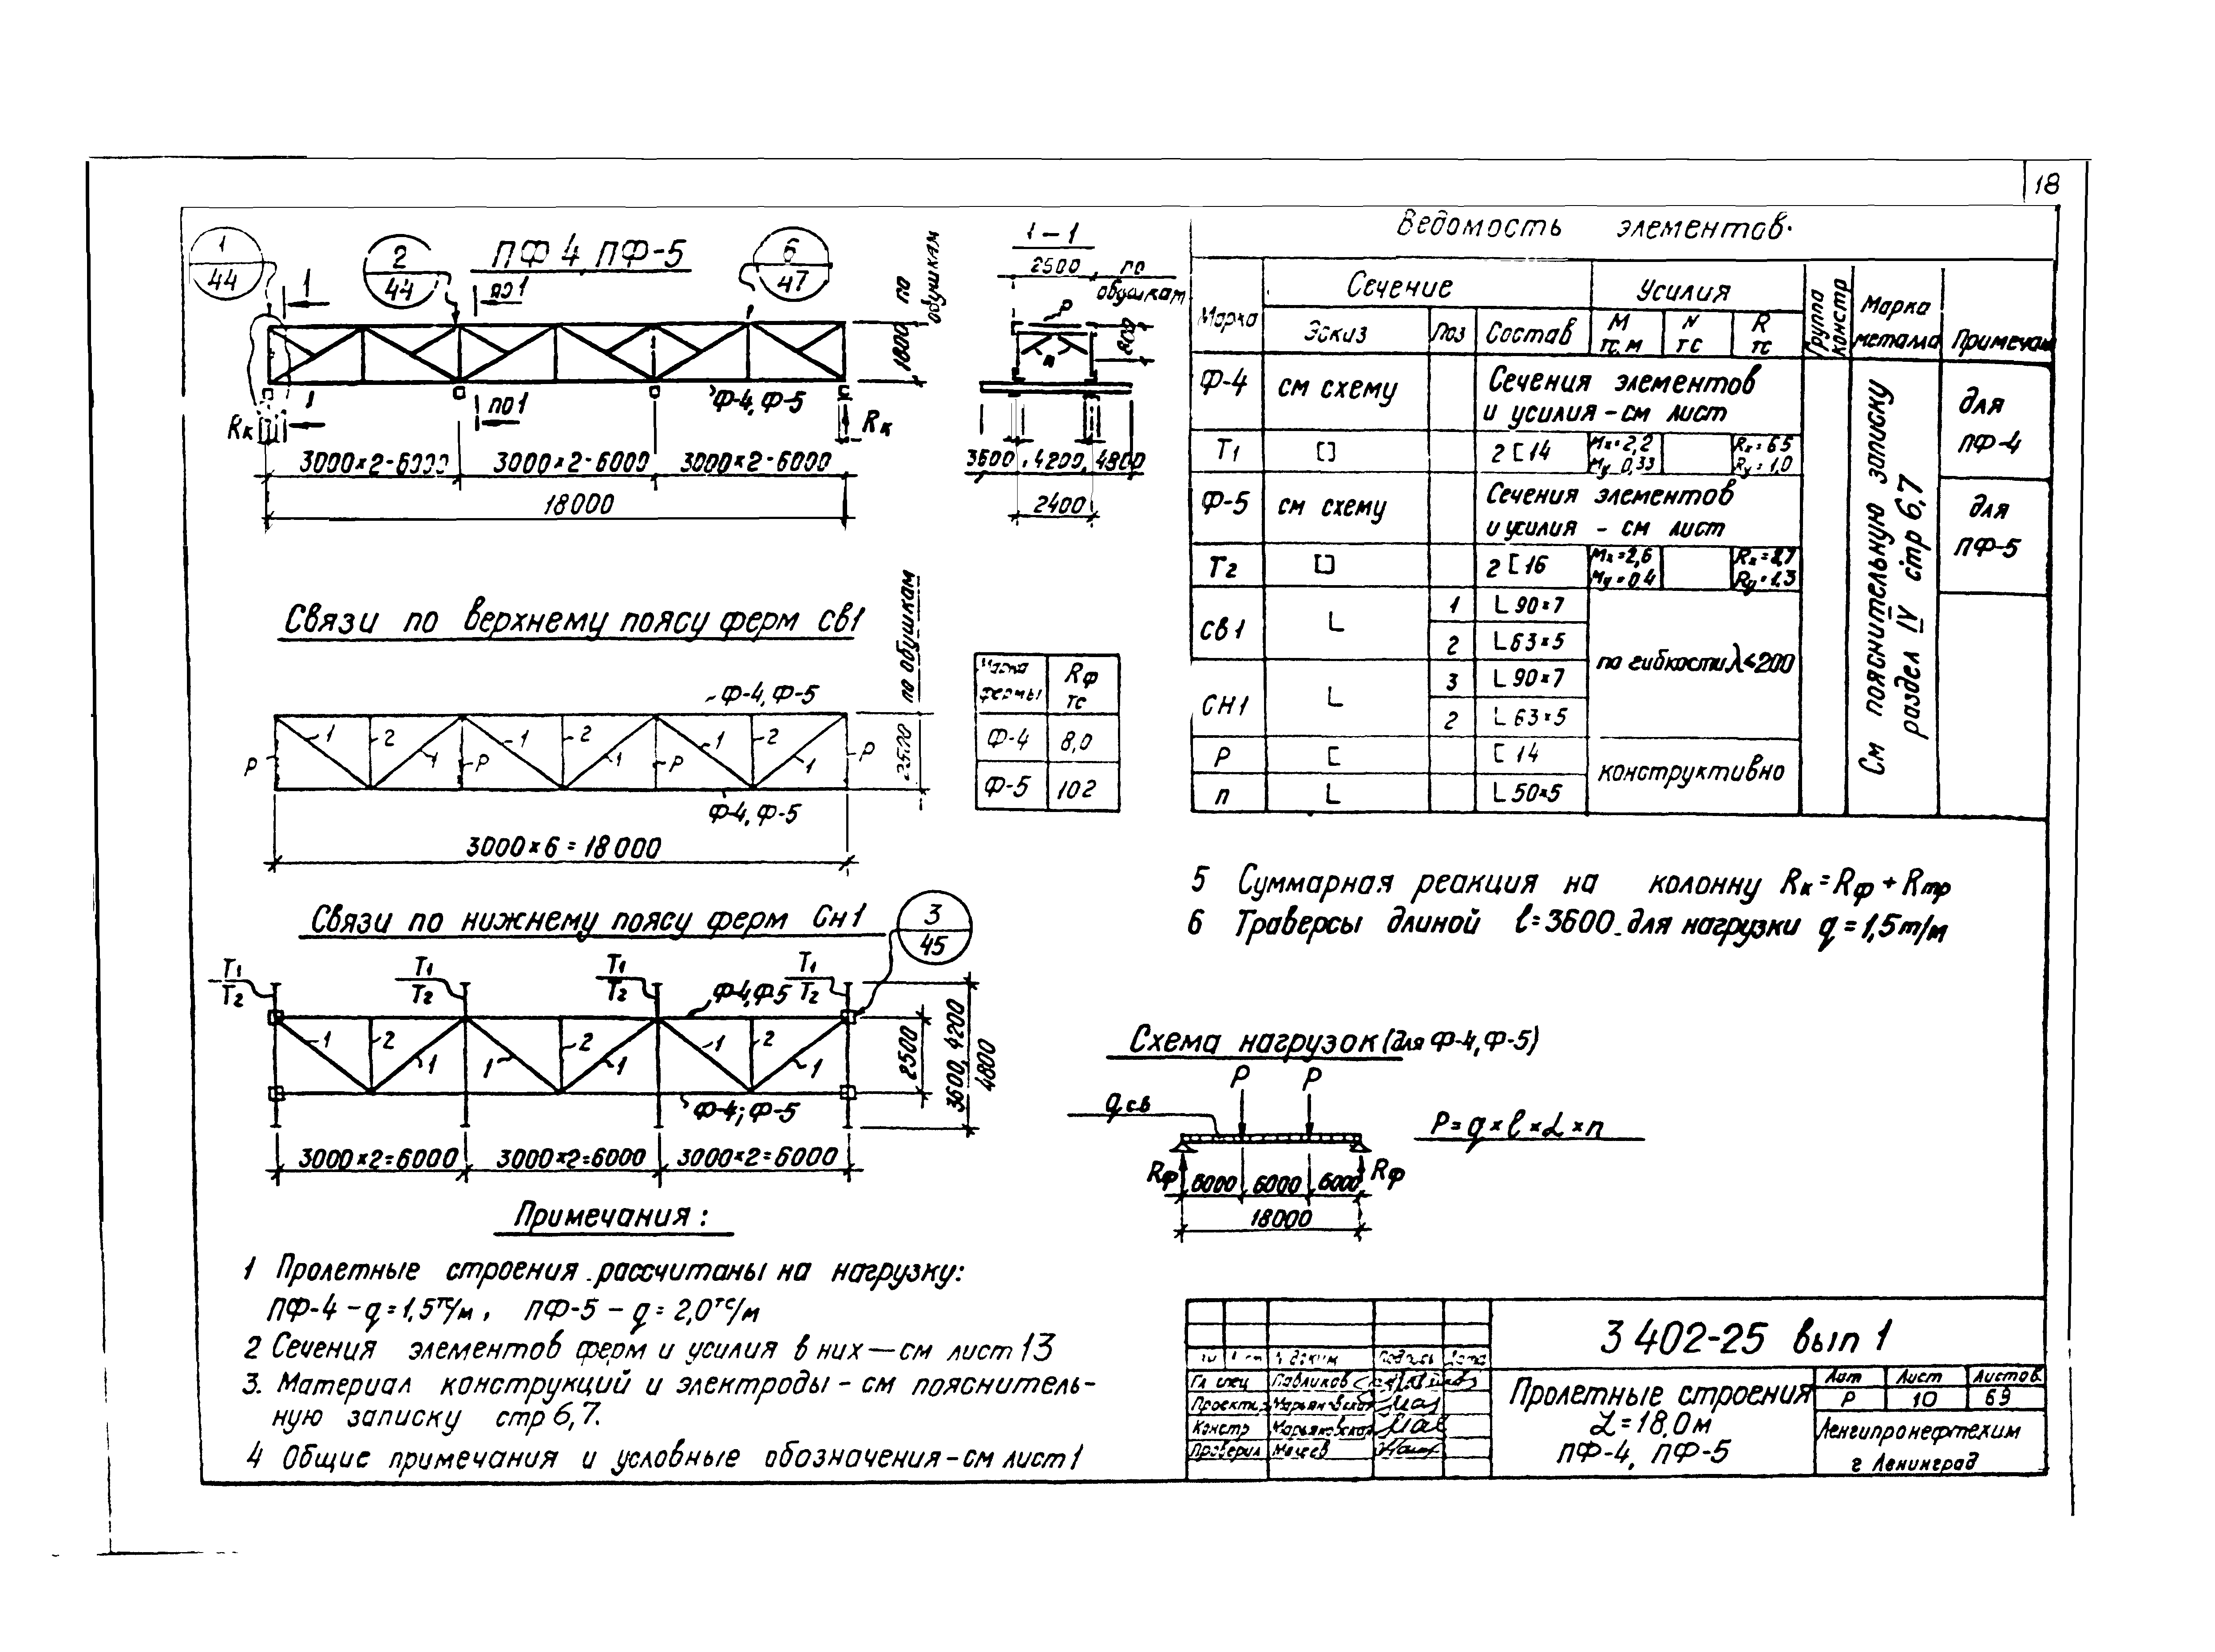 18
1
44
2
44
ПФ 4, ПФ-5
6
47
1
по 1
1800 по обушкам
Ф-4, Ф-5
по 1
Rк
Rк
3000×2=6000
3000×2=6000
3000×2=6000
18000
1-1
2500 по обушкам
Р
3600, 4200, 4800
2400
Связи по верхнему поясу ферм св1
Ф-4, Ф-5
1 2 1 1 2 1 1 2 1
Р Р Р Р
2500 по обушкам
Ф-4, Ф-5
3000×6=18000
Марка фермы
Rф тс
Ф-4 8,0
Ф-5 10 2
Связи по нижнему поясу ферм Сн1
3
45
Т1 Т1 Т1 Т1
Т2 Т2 Т2 Т2
Ф-4, Ф-5
1 2 1 1 2 1 1 2 1
2500
3600, 4200
4800
Ф-4; Ф-5
3000×2=6000
3000×2=6000
3000×2=6000
Примечания:
1 Пролетные строения рассчитаны на нагрузку:
ПФ-4 – q=1,5тс/м, ПФ-5 – q=2,0тс/м
2 Сечения элементов ферм и усилия в них — см лист 13
3. Материал конструкций и электроды - см пояснитель-
ную записку стр 6,7.
4 Общие примечания и условные обозначения - см лист 1
Ведомость элементов.
Марка
Сечение
Усилия
Группа констр
Марка металла
Примечан
Эскиз Поз Состав
М тс.м
N тс
R тс
Ф-4 см схему Сечения элементов
и усилия - см лист
Т1 [] 2[14 Mx=2,2 Rx=6.5
My 0,33 Ry=1,0
для
ПФ-4
Ф-5 см схему Сечения элементов
и усилия - см лист
Т2 [] 2[16 Mx=2,6
My=0,4 Ry=1,3
для
ПФ-5
св1 L 1 L 90×7
2 L 63×5
по гибкости λ≤200
СН1 L 3 L 90×7
2 L 63×5
Р [ [14
конструктивно
п L L 50×5
См пояснительную записку
раздел IV стр 6,7
5 Суммарная реакция на колонну Rк=Rф+Rтр
6 Траверсы длиной l=3600 для нагрузки q=1,5т/м
Схема нагрузок (для Ф-4, Ф-5)
Р Р
q св
Р=q×l×α×п
Rф Rф
6000 6000 6000
18000
3 402-25 вып 1
Подпись Дата
Гл спец Павликов
Проекти Марьяновская
Констр Марьяновская
Проверил
Пролетные строения
L=18,0м
ПФ-4, ПФ-5
Лит Лист Листов
Р 10 69
Ленгипронефтехим
г Ленинград